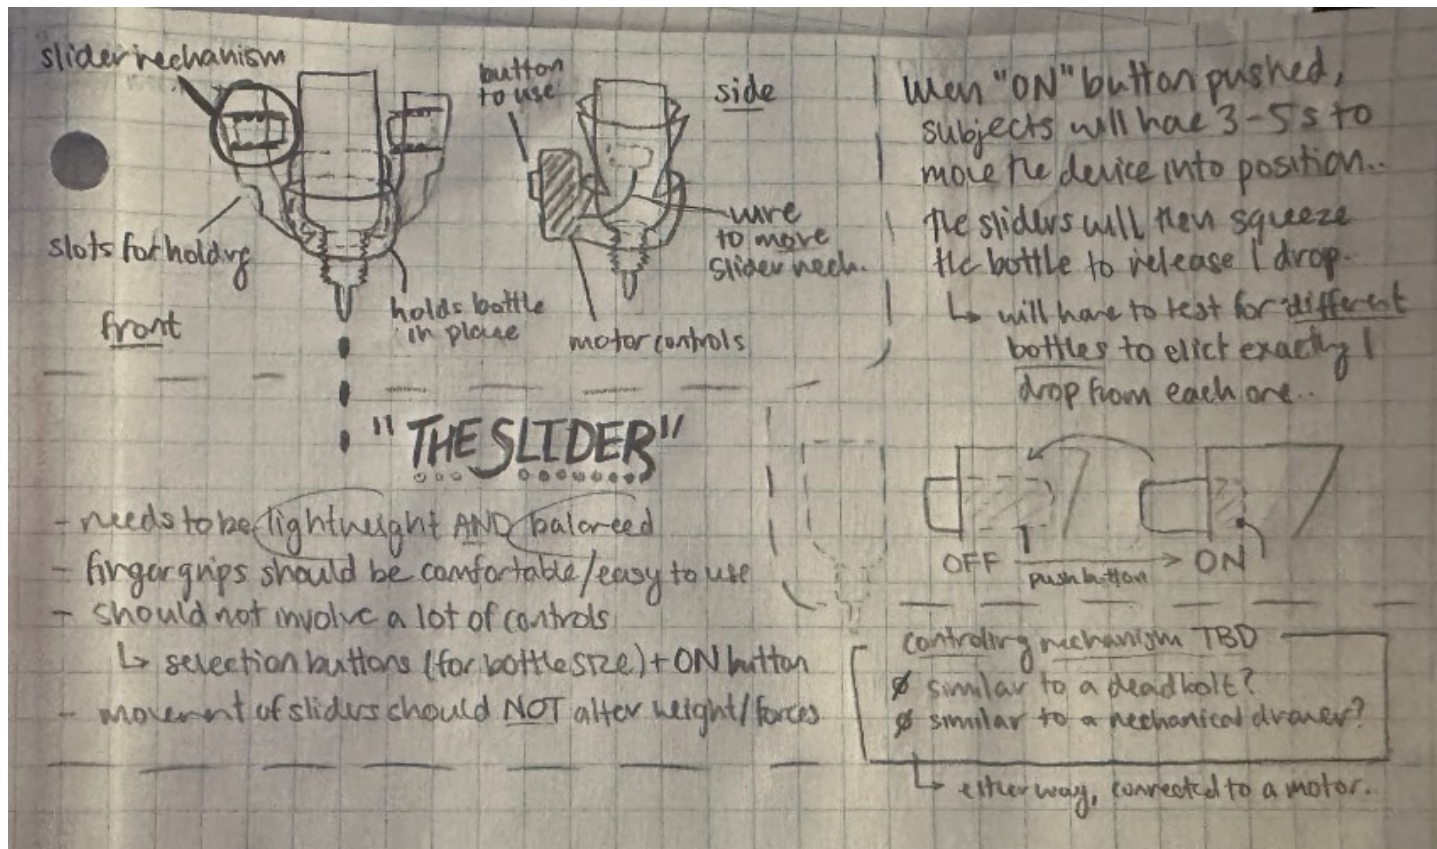 slider mechanism
slots for holding
front
holds bottle
in place
button
to use
side
wire
to move
slider mech.
motor controls
When "ON" button pushed,
subjects will have 3-5s to
move the device into position..
The sliders will then squeeze
the bottle to release 1 drop.
↳ will have to test for different
bottles to elict exactly 1
drop from each one..
"THE SLIDER"
- needs to be lightweight AND balanced
- finger grips should be comfortable/easy to use
- should not involve a lot of controls
↳ selection buttons (for bottle size) + ON button
- movement of sliders should NOT alter weight/forces
OFF
push button
ON
controling mechanism TBD
Ø similar to a deadbolt?
Ø similar to a mechanical drawer?
↳ either way, connected to a motor.